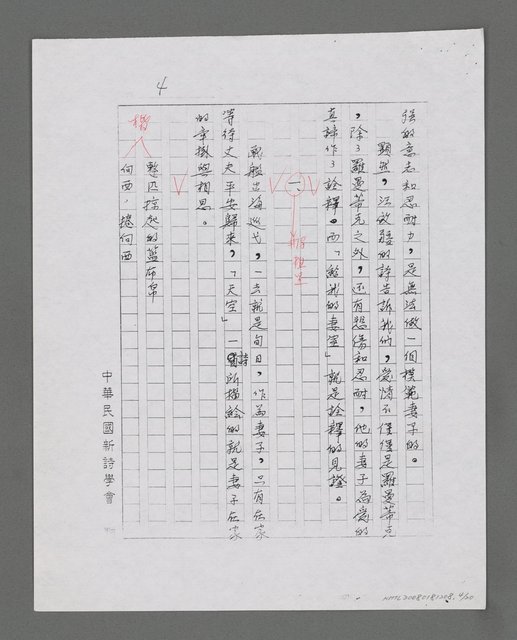 4
強的意志和忍耐力，是無法做一個模範妻子的。
顯然，汪啟疆的詩告訴我們，愛情不僅僅是羅曼蒂克
，除了羅曼蒂克之外，還有悲傷和忍耐，他的妻子為愛的
真諦作了詮釋。而「給我的妻室」就是詮釋的見證。
一、
戰艦出海巡弋，一去就是旬日，作為妻子，只有在家
等待丈夫平安歸來，「天空」一詩所描繪的就是妻子在家
的牽掛與相思。
整匹掠起的藍布帛
向西，捲向西
中華民國新詩學會
NMTL20080181208. 4/20